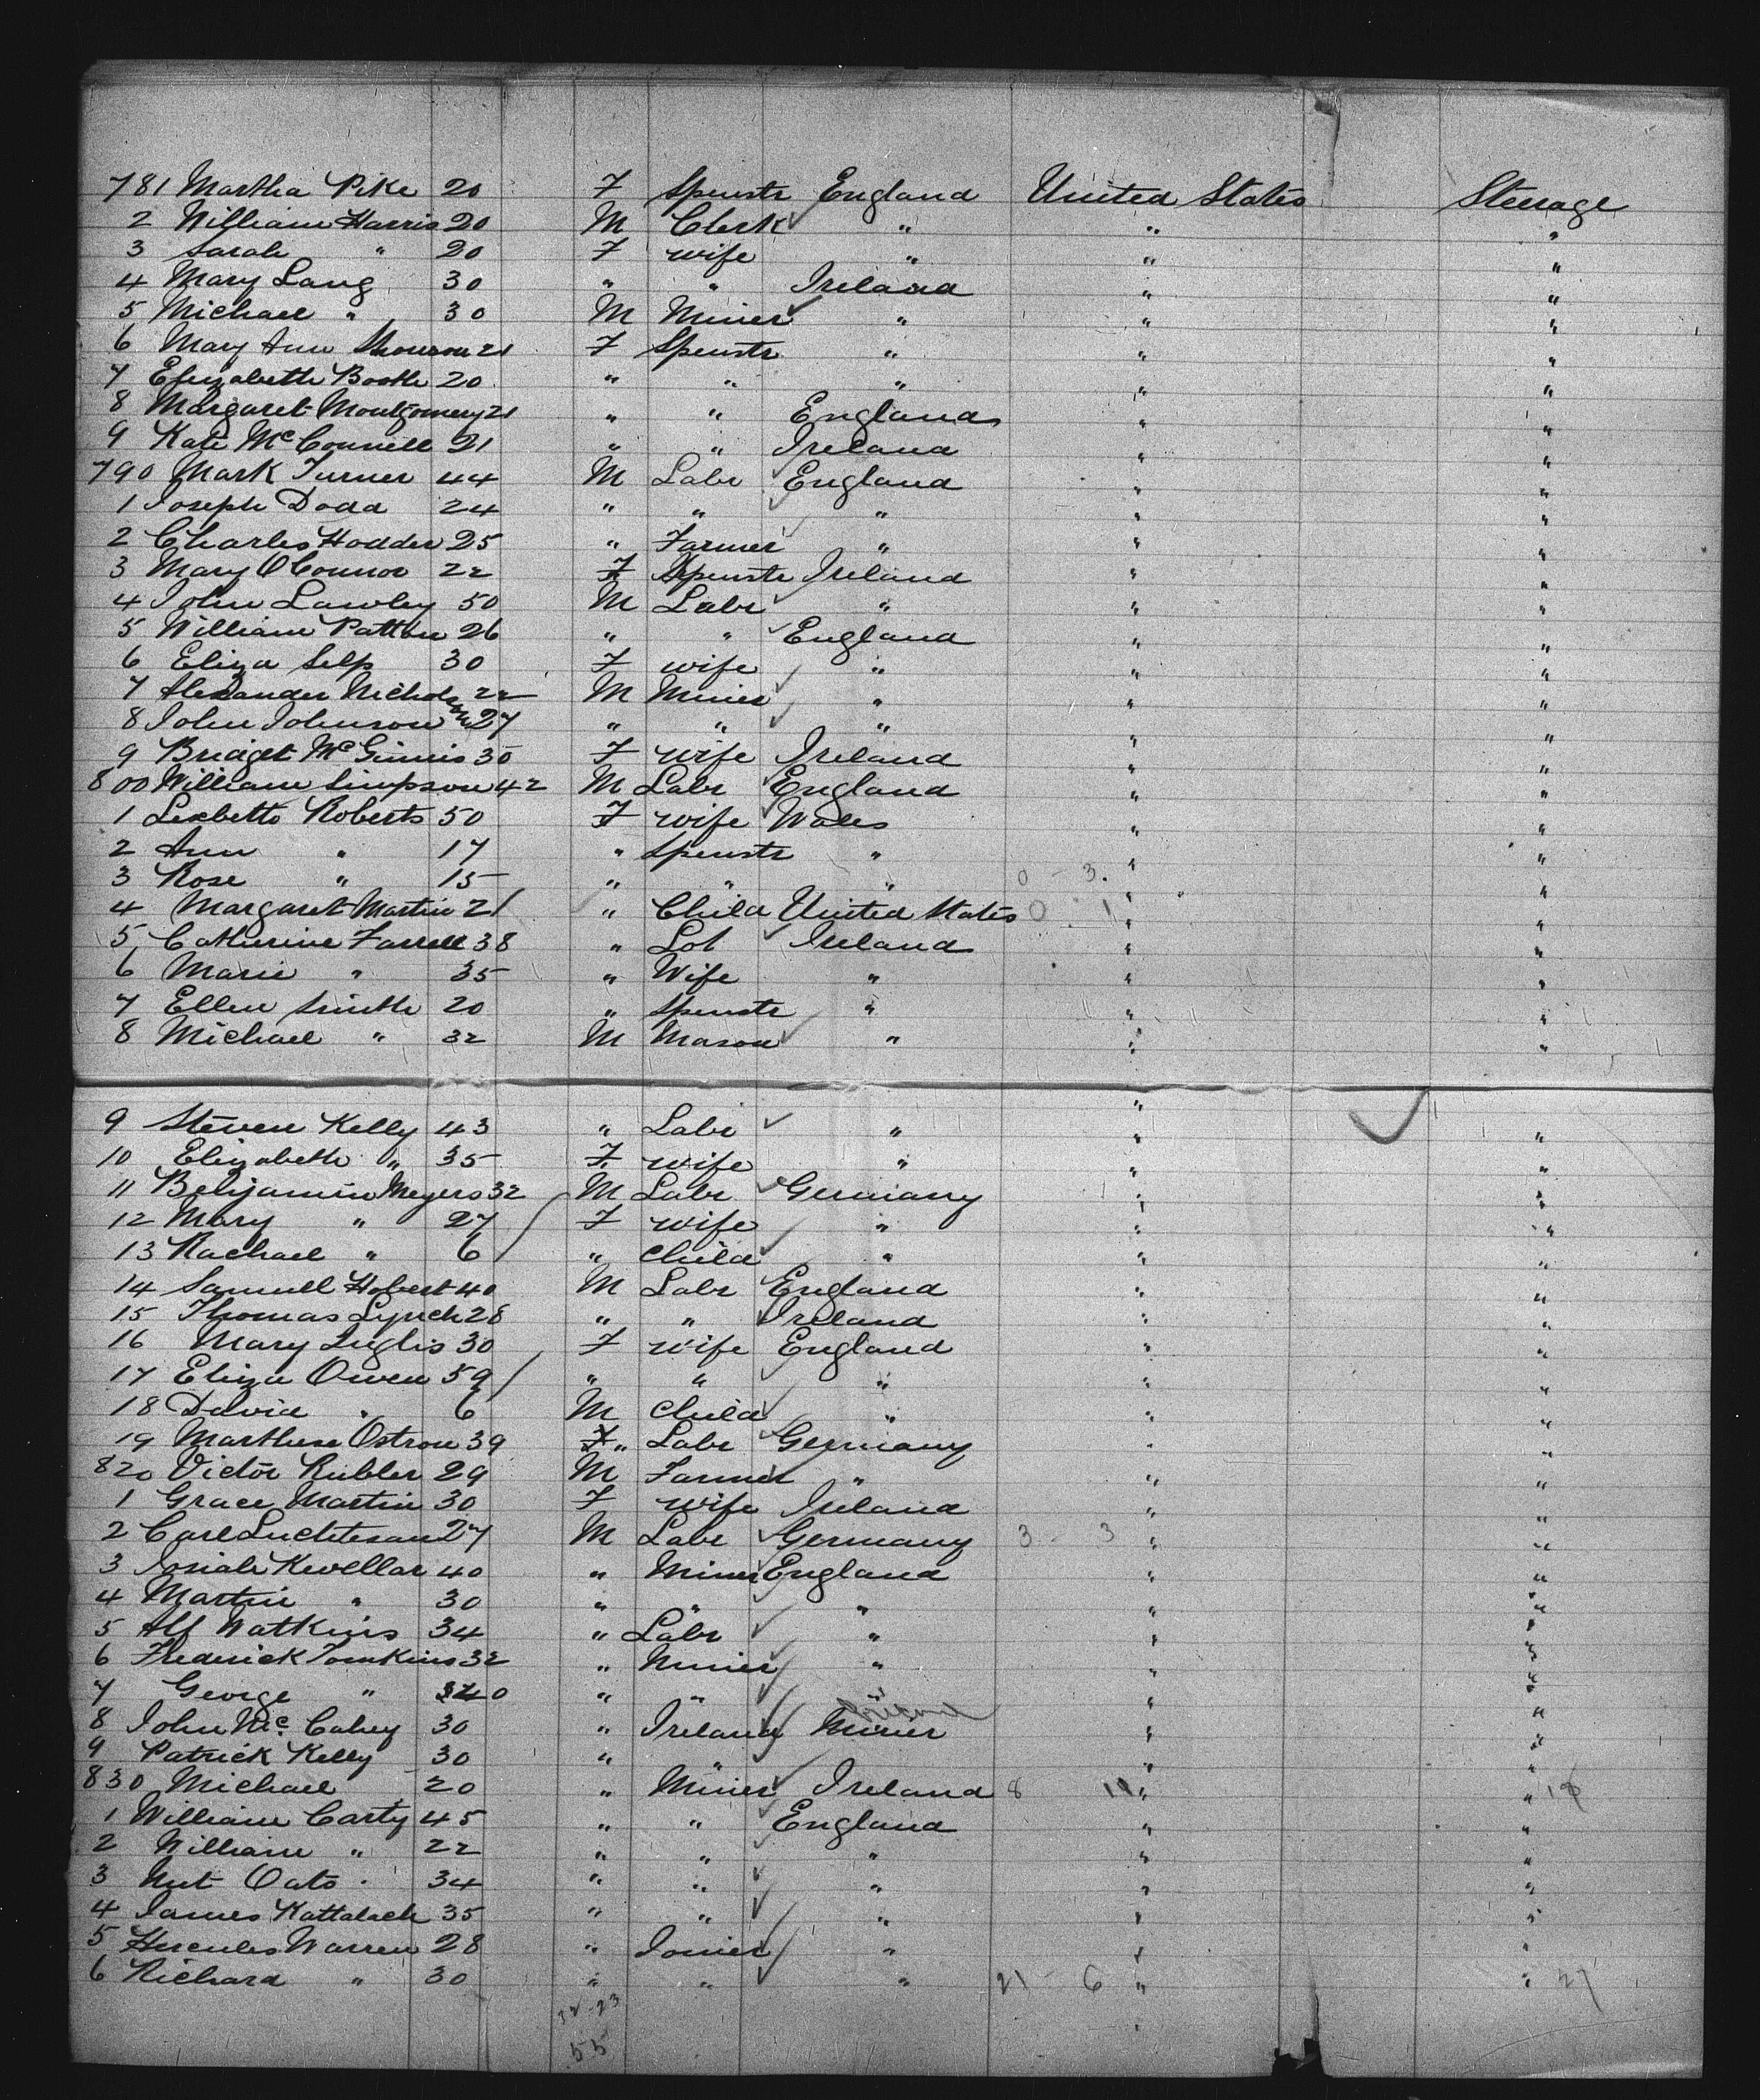 781 Martha Pike 20 F Spenstr England United States Steerage
2 William Harris 20 M Clerk " " "
3 Sarah " 20 F wife " " "
4 Mary Lang 30 " " Ireland " "
5 Michael " 30 M Miner " " "
6 Mary Ann 21 F Spenstr " " "
7 Elizabeth Booth 20 " " " " "
8 Margaret Montgomery 21 " " England " "
9 Kate McConnell 21 " " Ireland " "
790 Mark Turner 44 M Labr England " "
1 Joseph Dodd 24 " " " " "
2 Charles Hodder 25 " Farmer " " "
3 Mary OConnor 22 F Spenstr Ireland " "
4 John Lawley 50 M Labr " " "
5 William Patten 26 " " England " "
6 Eliza Selp 30 F wife " " "
7 Alexander Nicholson 22 M Miner " " "
8 John Johnson 27 " " " " "
9 Bridget McGinnis 30 F wife Ireland " "
800 William Simpson 42 M Labr England " "
1 Roberts 50 F wife Wales " "
2 Ann " 17 " Spenstr " " "
3 Rose " 15 " " " 0 - 3. " "
4 Margaret Martin 21 " Child United States 0 - 1 " "
5 Catherine Farrell 38 " Lab Ireland " "
6 Marie " 35 " Wife " " "
7 Ellen Smith 20 " Spenstr " " "
8 Michael " 32 M Mason " " "
9 Steven Kelly 43 " Labr " " "
10 Elizabeth " 35 F wife " " "
11 Benjamin Meyers 32 M Labr Germany " "
12 Mary " 27 F wife " " "
13 Rachael " 6 " Child " " "
14 Samuell Hobert 40 M Labr England " "
15 Thomas Lynch 28 " " Ireland " "
16 Mary Inglis 30 F wife England " "
17 Eliza Owen 59 " " " " "
18 David " 6 M Child " " "
19 Ostrom 39 " Labr Germany " "
820 Victor Rubler 29 M Farmer " " "
1 Grace Martin 30 F wife Ireland " "
2 Carl 27 M Labr Germany 3 - 3 " "
3 Josiah Kevellar 40 " Miner England " "
4 Martin " 30 " " " " "
5 Alf Watkins 34 " Labr " " "
6 Frederick Tomkins 32 " Miner " " "
7 George " 40 " " " " "
8 John McCahey 30 " Ireland Miner " "
9 Patrick Kelly 30 " " " "
830 Michael 20 " Miner Ireland 8 11 " " 18
1 William Carty 45 " " England " "
2 William " 22 " " " " "
3 Oats 34 " " " " "
4 James Kattalack 35 " " " " "
5 Hercules Warren 28 " Joiner " " "
6 Richard " 30 " " " 21 - 6 " " 27
32 - 23
55